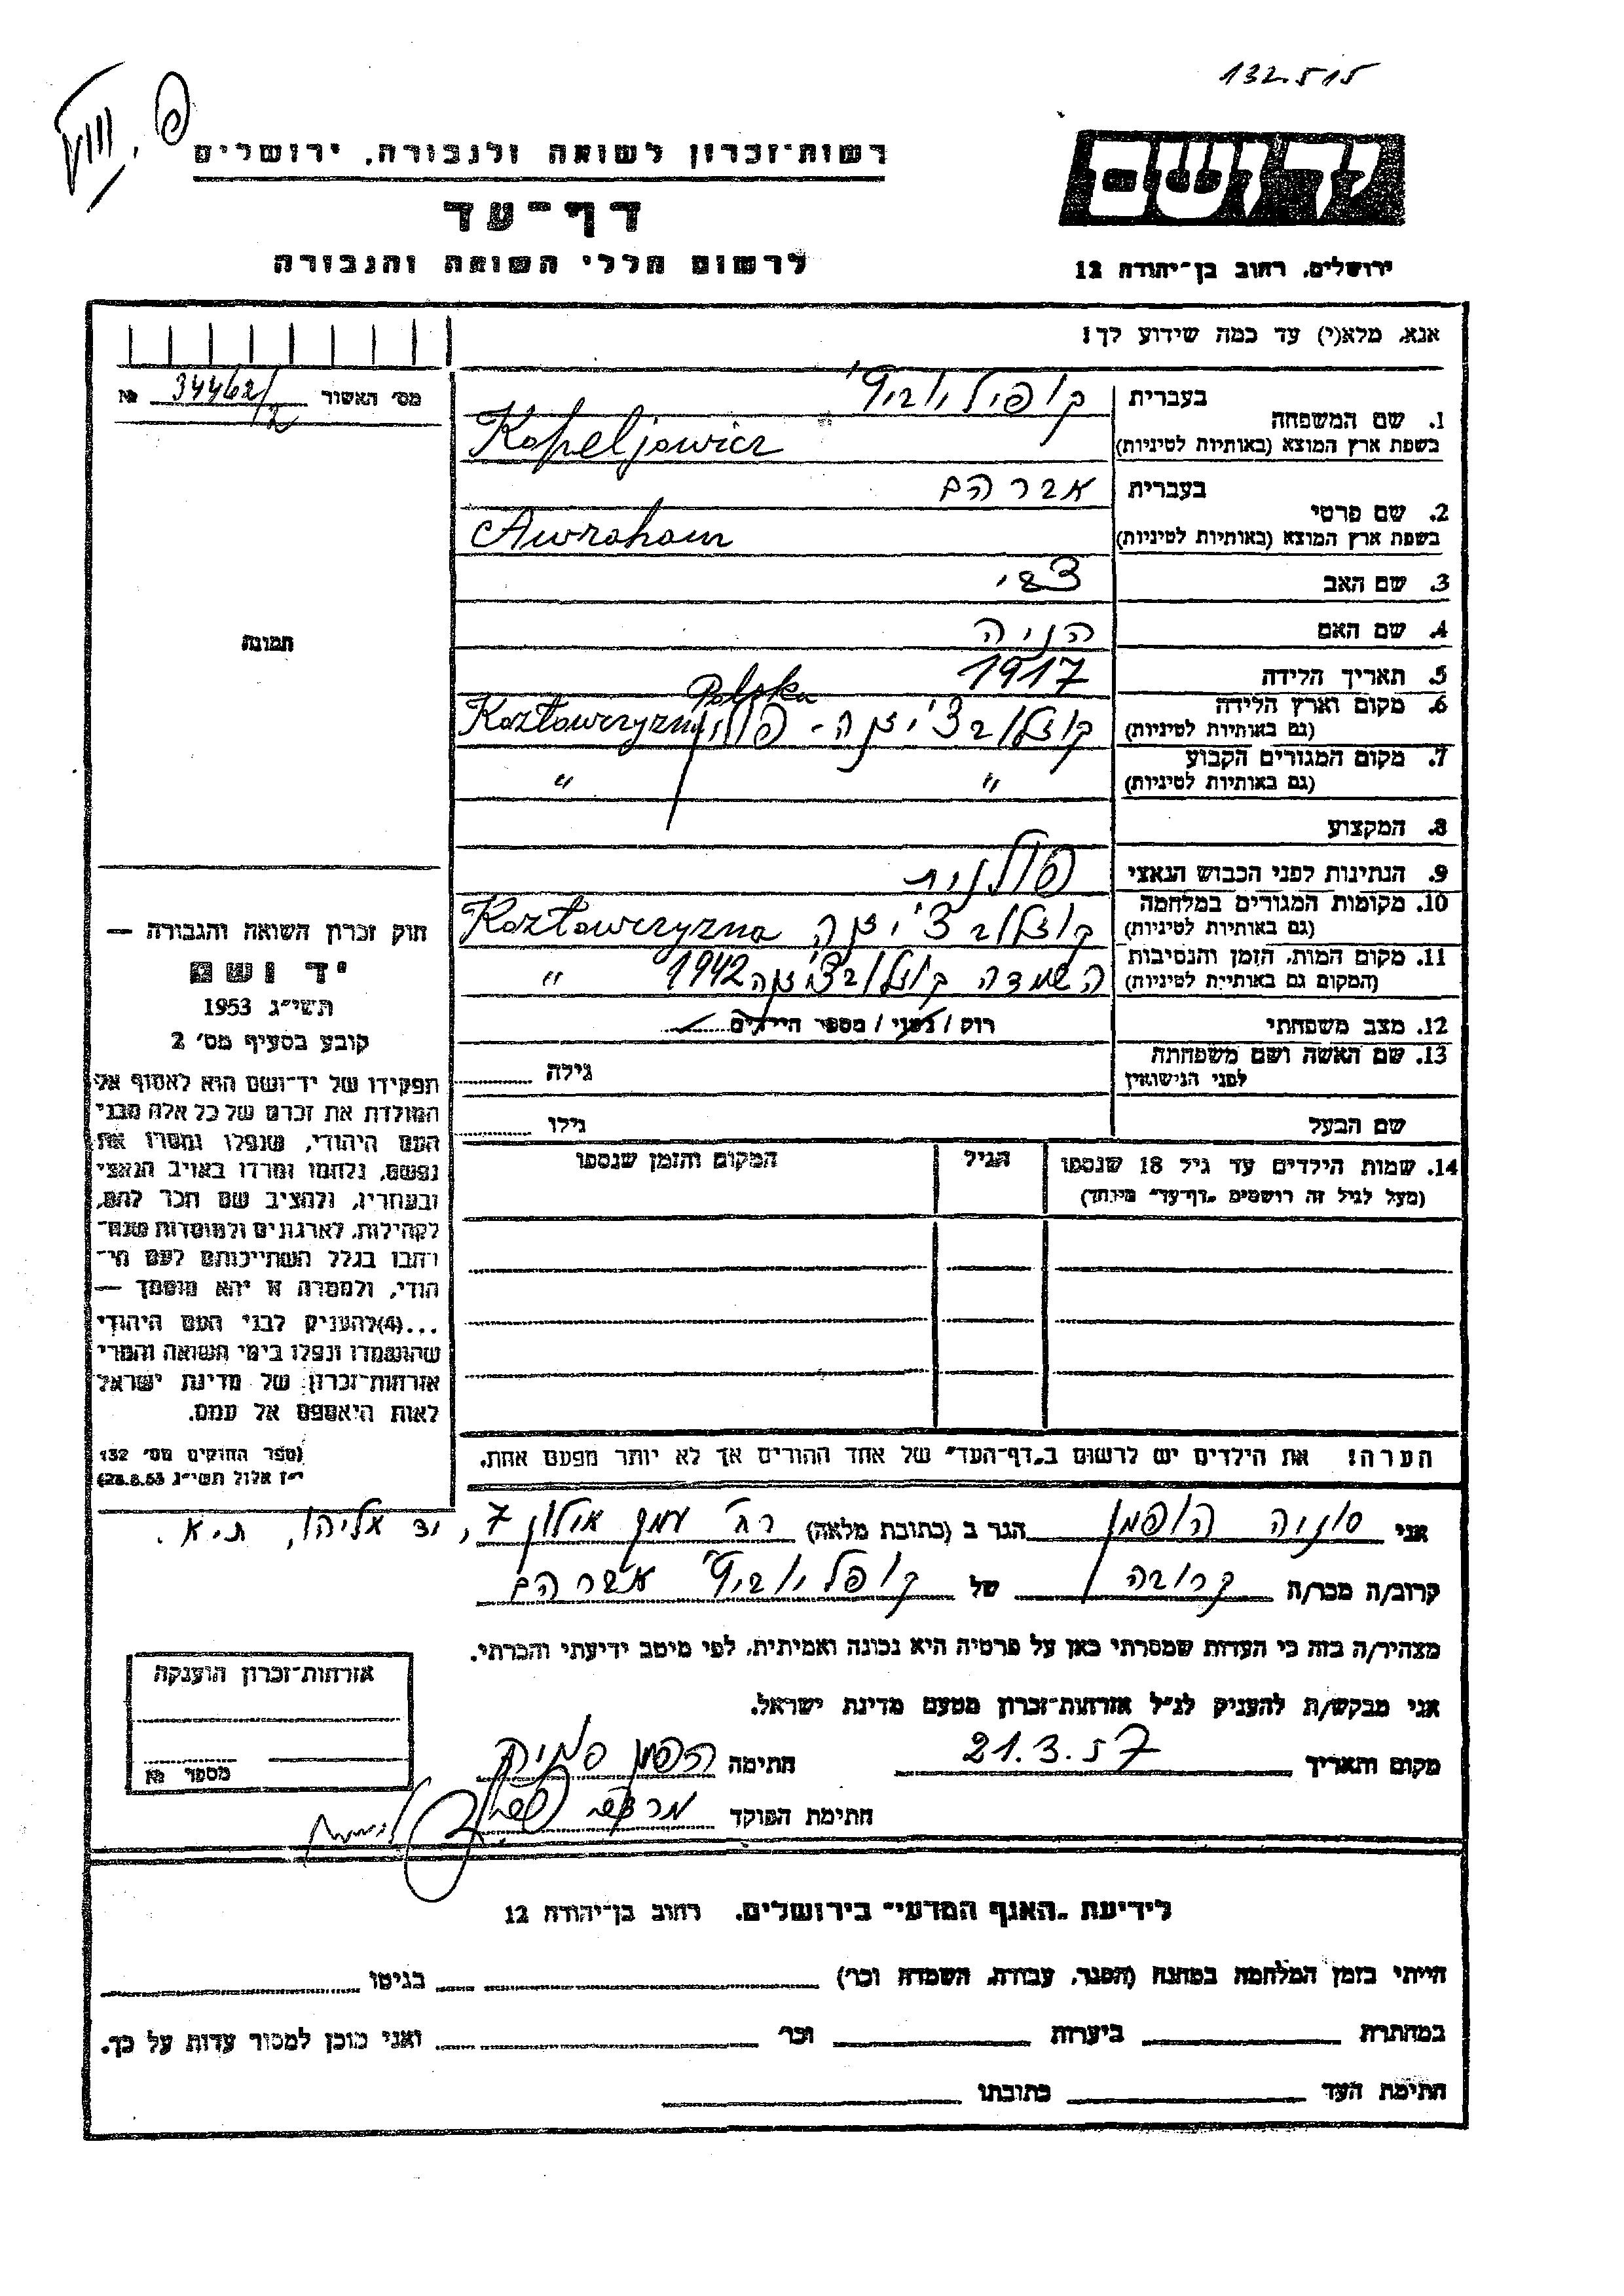 132.515
רשות־זכרון לשואה ולגבורה, ירושלים
יד ושם
דף־עד
לרשום חללי השואה והגבורה
ירושלים, רחוב בן־יהודה 12
אנא, מלא(י) עד כמה שידוע לך!
מס׳ האשור 34462/2 №
בעברית קופילוביץ׳
1. שם המשפחה
בשפת ארץ המוצא (באותיות לטיניות) Kopeljowicz
בעברית אברהם
2. שם פרטי
בשפת ארץ המוצא (באותיות לטיניות) Awraham
3. שם האב צבי
4. שם האם הניה
תמונה
5. תאריך הלידה 1917
6. מקום וארץ הלידה
(גם באותיות לטיניות) קוזלובצ׳יזנה - פולין Kozławczyzna Polska
7. מקום המגורים הקבוע
(גם באותיות לטיניות) " "
8. המקצוע
9. הנתינות לפני הכבוש הנאצי פולנית
10. מקומות המגורים במלחמה
(גם באותיות לטיניות) קוזלובצ׳יזנה Kozławczyzna
11. מקום המות, הזמן והנסיבות
(המקום גם באותיות לטיניות) השמדה קוזלובצ׳יזנה 1942 "
12. מצב משפחתי רוק / נשוי / מספר הילדים
13. שם האשה ושם משפחתה
לפני הנישואין גילה
שם הבעל גילו
14. שמות הילדים עד גיל 18 שנספו הגיל המקום והזמן שנספו
(מעל לגיל זה רושמים "דף־עד" מיוחד)
חוק זכרון השואה והגבורה —
יד ושם
תשי״ג 1953
קובע בסעיף מס׳ 2
תפקידו של יד־ושם הוא לאסוף אל
המולדת את זכרם של כל אלה מבני
העם היהודי, שנפלו ומסרו את
נפשם, נלחמו ומרדו באויב הנאצי
ובעוזריו, ולהציב שם וזכר להם,
לקהילות, לארגונים ולמוסדות שנח־
רבו בגלל השתייכותם לעם הי־
הודי, ולמטרה זו יהא מוסמך —
...(4) להעניק לבני העם היהודי
שהושמדו ונפלו בימי השואה והמרי
אזרחות־זכרון של מדינת ישראל
לאות היאספם אל עמם.
(ספר החוקים מס׳ 132
י״ז אלול תשי״ג 28.8.53)
הערה! את הילדים יש לרשום ב"דף־העד" של אחד ההורים אך לא יותר מפעם אחת.
אני סוניה הופמן הגר ב (כתובת מלאה) רח׳ עמק אילון 7, יד אליהו, ת.א.
קרוב/ה מכר/ה קרובה של קופליוביץ׳ אברהם
מצהיר/ה בזה כי העדות שמסרתי כאן על פרטיה היא נכונה ואמיתית, לפי מיטב ידיעתי והכרתי.
אני מבקש/ת להעניק לנ״ל אזרחות־זכרון מטעם מדינת ישראל.
מקום ותאריך 21.3.57 חתימה הופמן סוניה
חתימת הפוקד
אזרחות־זכרון הוענקה
מספר №
לידיעת "האגף המדעי" בירושלים, רחוב בן־יהודה 12
הייתי בזמן המלחמה במחנה (הסגר, עבודה, השמדה וכו׳) בגיטו
במחתרת ביערות וכו׳ ואני מוכן למסור עדות על כך.
חתימת העד כתובתו